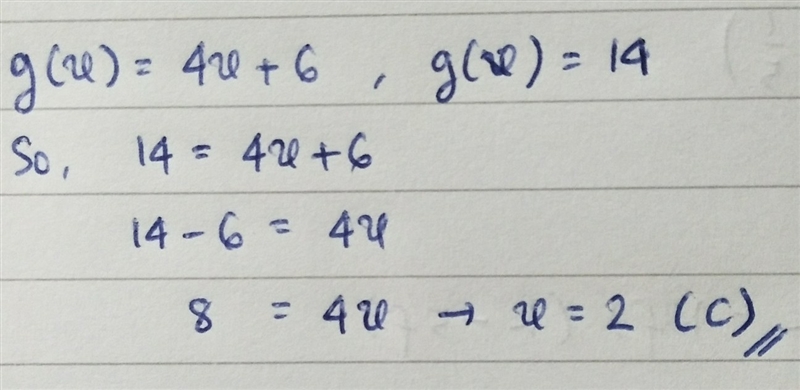 g(x) = 4x + 6 , g(x) = 14
So, 14 = 4x + 6
14 - 6 = 4x
8 = 4x → x = 2 (C)//